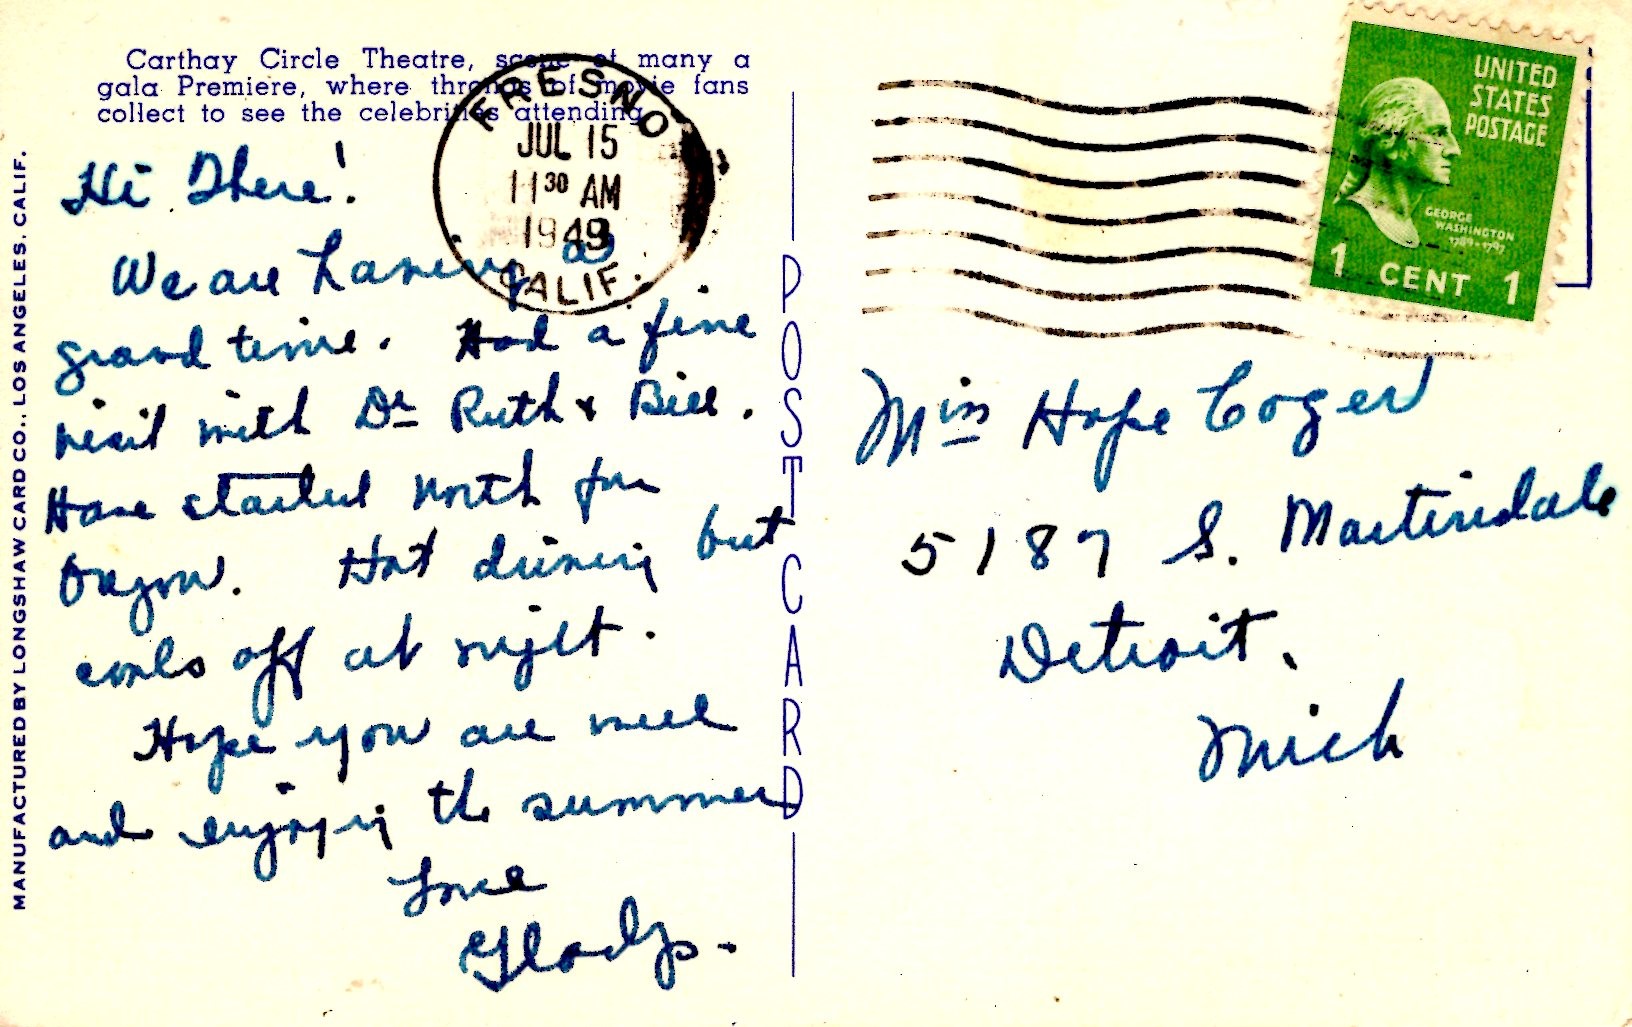 Carthay Circle Theatre, scene of many a
gala Premiere, where throngs of movie fans
collect to see the celebrities attending.
FRESNO
JUL 15
11 30 AM
1949
CALIF.
UNITED
STATES
POSTAGE
GEORGE
WASHINGTON
1789-1797
1 CENT 1
MANUFACTURED BY LONGSHAW CARD CO., LOS ANGELES, CALIF.
Hi There!
We are having a
grand time. Had a fine
visit with Dr Ruth & Bill.
Have started north for
Oregon. Hot driving but
cools off at night.
Hope you are well
and enjoying the summer
Love
Gladys.
POST CARD
Miss Hope Coger
5187 S. Martindale
Detroit.
Mich